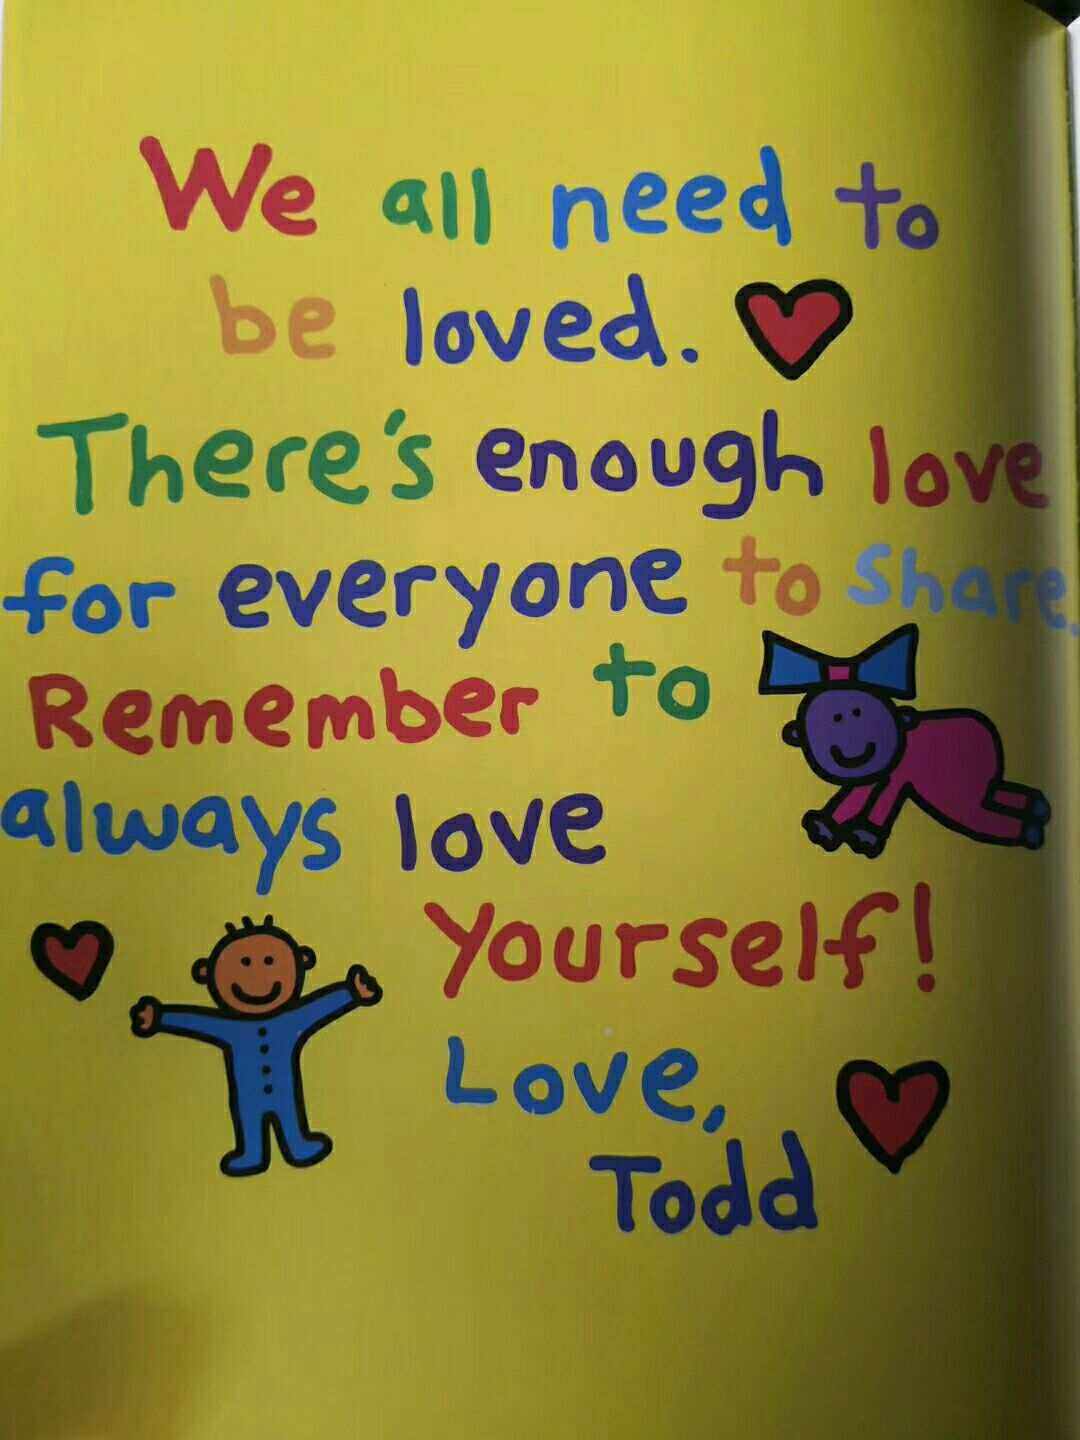 We all need to
be loved.
There's enough love
for everyone to share.
Remember to
always love
yourself!
Love,
Todd